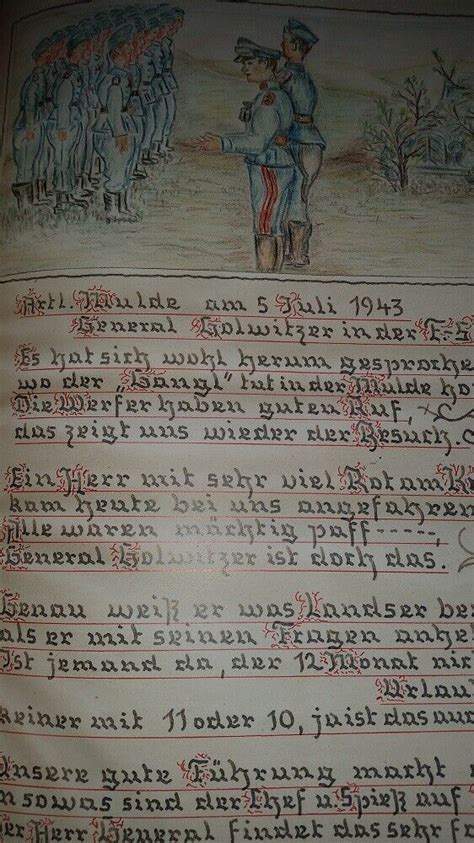 Artl. Mulde am 5 Juli 1943
General Golwitzer in der F:S
Es hat sich wohl herum gesproche
wo der „Gangl" tut in der Mulde ho
Die Werfer haben guten Ruf,
das zeigt uns wieder der Besuch.
Ein Herr mit sehr viel Rot am
kam heute bei uns angefahren
Alle waren mächtig paff ----,
General Golwitzer ist doch das.
Genau weiß er was Landser be
als er mit seinen Fragen anhe
Ist jemand da, der 12 Monat nic
Urlau
keiner mit 11 oder 10, ja ist das au
Unsere gute Führung macht
n sowas sind der Chef u. Spieß auf
er Herr General findet das sehr f